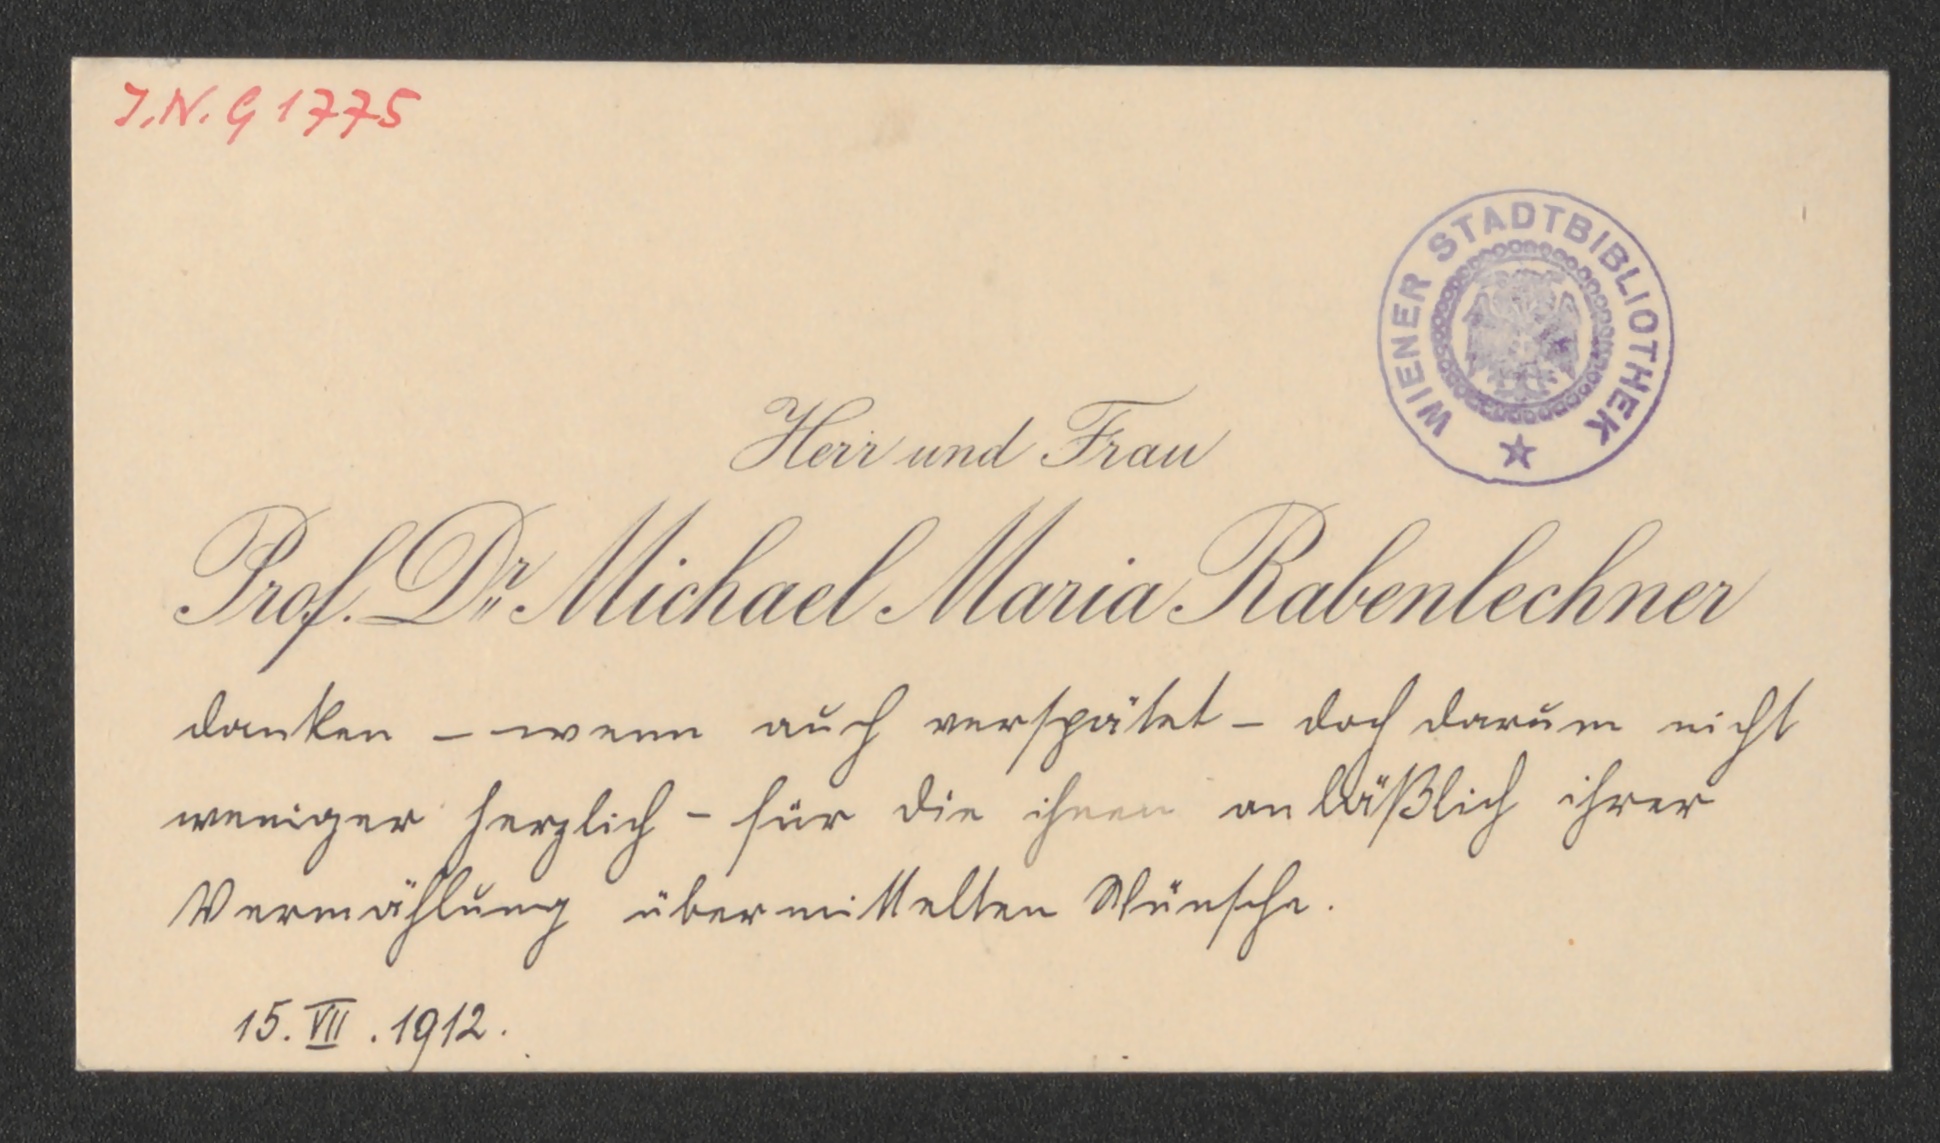 J.N. G 1775
WIENER STADTBIBLIOTHEK
Herr und Frau
Prof. Dr. Michael Maria Rabenlechner
danken – wenn auch verspätet – doch darum nicht
weniger herzlich – für die ihnen anläßlich ihrer
Vermählung übermittelten Wünsche.
15. VII. 1912.